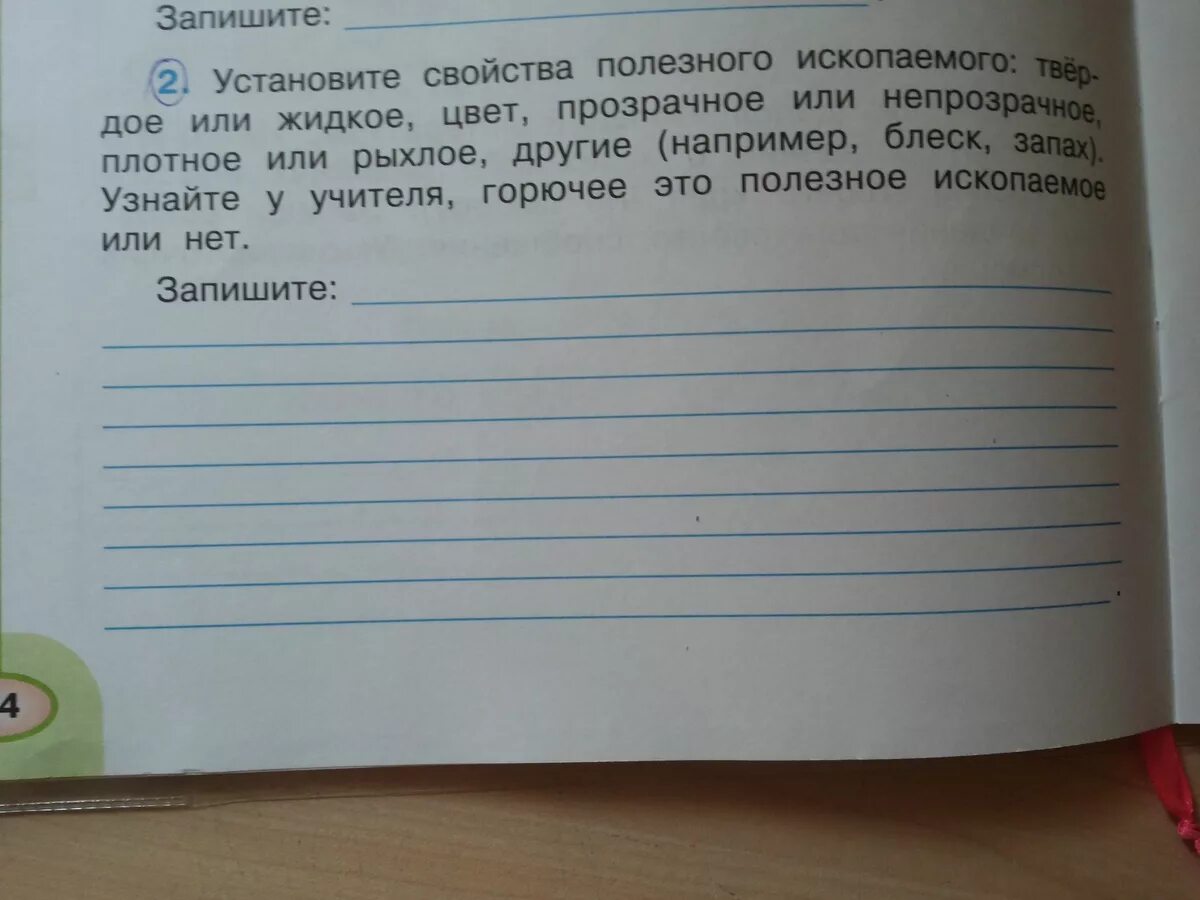 Запишите:
2. Установите свойства полезного ископаемого: твёр-
дое или жидкое, цвет, прозрачное или непрозрачное,
плотное или рыхлое, другие (например, блеск, запах).
Узнайте у учителя, горючее это полезное ископаемое
или нет.
Запишите:
4